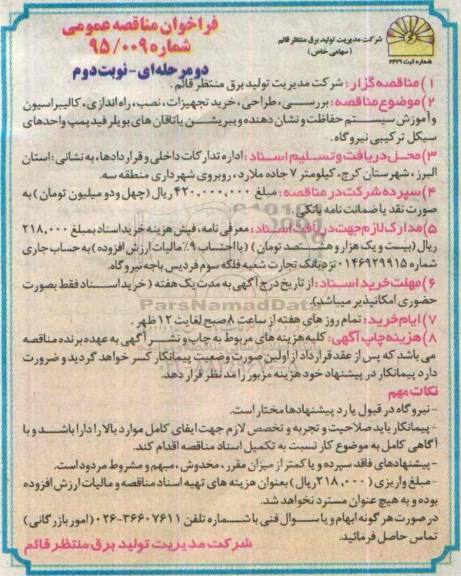 فراخوان مناقصه عمومی
شماره ۹۵/۰۰۹
دو مرحله‌ای - نوبت دوم
شرکت مدیریت تولید برق منتظر قائم
(سهامی خاص)
شماره ثبت ۶۲۲۹
۱) مناقصه گزار: شرکت مدیریت تولید برق منتظر قائم.
۲) موضوع مناقصه: بررسی، طراحی، خرید تجهیزات، نصب، راه اندازی، کالیبراسیون
و آموزش سیستم حفاظت و نشان دهنده ویبریشن یاتاقان های بویلر فید پمپ واحدهای
سیکل ترکیبی نیروگاه.
۳) محل دریافت و تسلیم اسناد: اداره تدارکات داخلی و قراردادها، به نشانی: استان
البرز، شهرستان کرج، کیلومتر ۷ جاده ملارد، روبروی شهرداری منطقه سه.
۴) سپرده شرکت در مناقصه: مبلغ ۴۲۰,۰۰۰,۰۰۰ ریال (چهل و دو میلیون تومان) به
صورت نقد یا ضمانت نامه بانکی
۵) مدارک لازم جهت دریافت اسناد: معرفی نامه، فیش هزینه خرید اسناد بمبلغ ۲۱۸,۰۰۰
ریال (بیست و یک هزار و هشتصد تومان) (با احتساب ۹٪ مالیات ارزش افزوده) به حساب جاری
شماره ۰۱۴۶۹۲۹۹۱۵ نزد بانک تجارت شعبه فلکه سوم فردیس باجه نیروگاه.
۶) مهلت خرید اسناد: از تاریخ درج آگهی به مدت یک هفته (خرید اسناد فقط بصورت
حضوری امکانپذیر میباشد).
ParsNamadData
۷) ایام خرید: تمام روز های هفته از ساعت ۸ صبح لغایت ۱۲ ظهر.
۸) هزینه چاپ آگهی: کلیه هزینه های مربوط به چاپ و نشر آگهی به عهده برنده مناقصه
می باشد که پس از عقد قرارداد از اولین صورت وضعیت پیمانکار کسر خواهد گردید و ضرورت
دارد پیمانکار در پیشنهاد خود هزینه مزبور را مد نظر قرار دهد.
نکات مهم
- نیروگاه در قبول یا رد پیشنهادها مختار است.
- پیمانکار باید صلاحیت و تجربه و تخصص لازم جهت ایفای کامل موارد بالا را دارا باشد و با
آگاهی کامل به موضوع کار نسبت به تکمیل اسناد مناقصه اقدام کند.
- پیشنهادهای فاقد سپرده و یا کمتر از میزان مقرر، مخدوش، مبهم و مشروط مردود است.
- مبلغ واریزی (۲۱۸,۰۰۰ ریال) بعنوان هزینه های تهیه اسناد مناقصه و مالیات ارزش افزوده
بوده و به هیچ عنوان مسترد نخواهد شد.
در صورت هر گونه ابهام و یا سوال فنی با شماره تلفن ۳۶۶۰۷۶۱۱-۰۲۶ (امور بازرگانی)
تماس حاصل فرمائید.
شرکت مدیریت تولید برق منتظر قائم